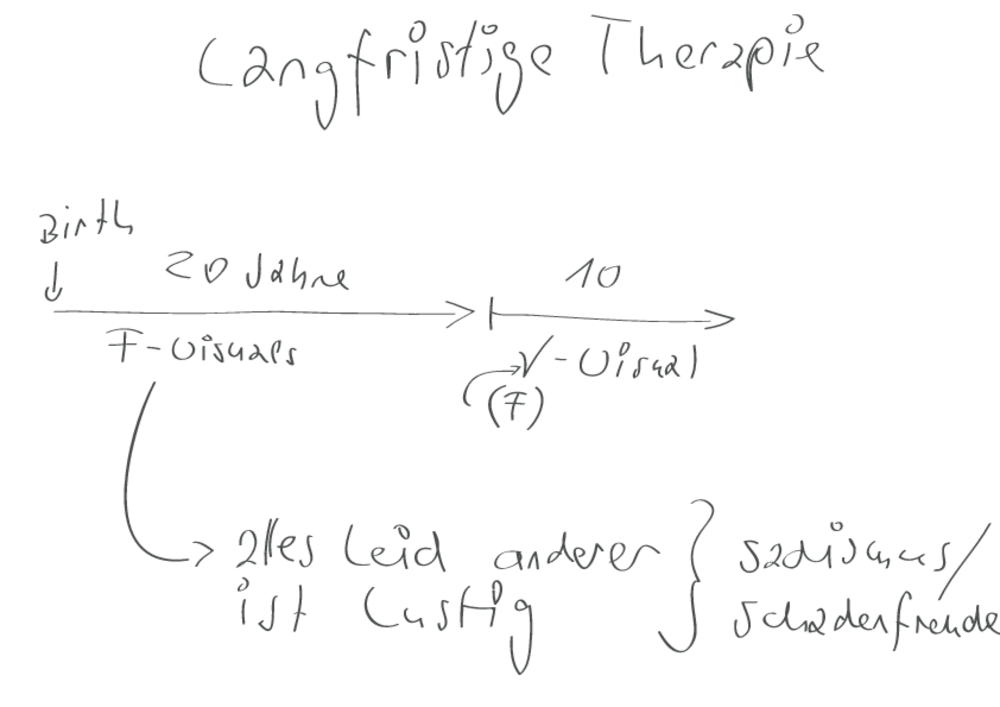 Langfristige Therapie
Birth
20 Jahre
10
F-Visuals
V-Visual
(F)
alles Leid anderer
ist lustig
Sadismus/
Schadenfreude